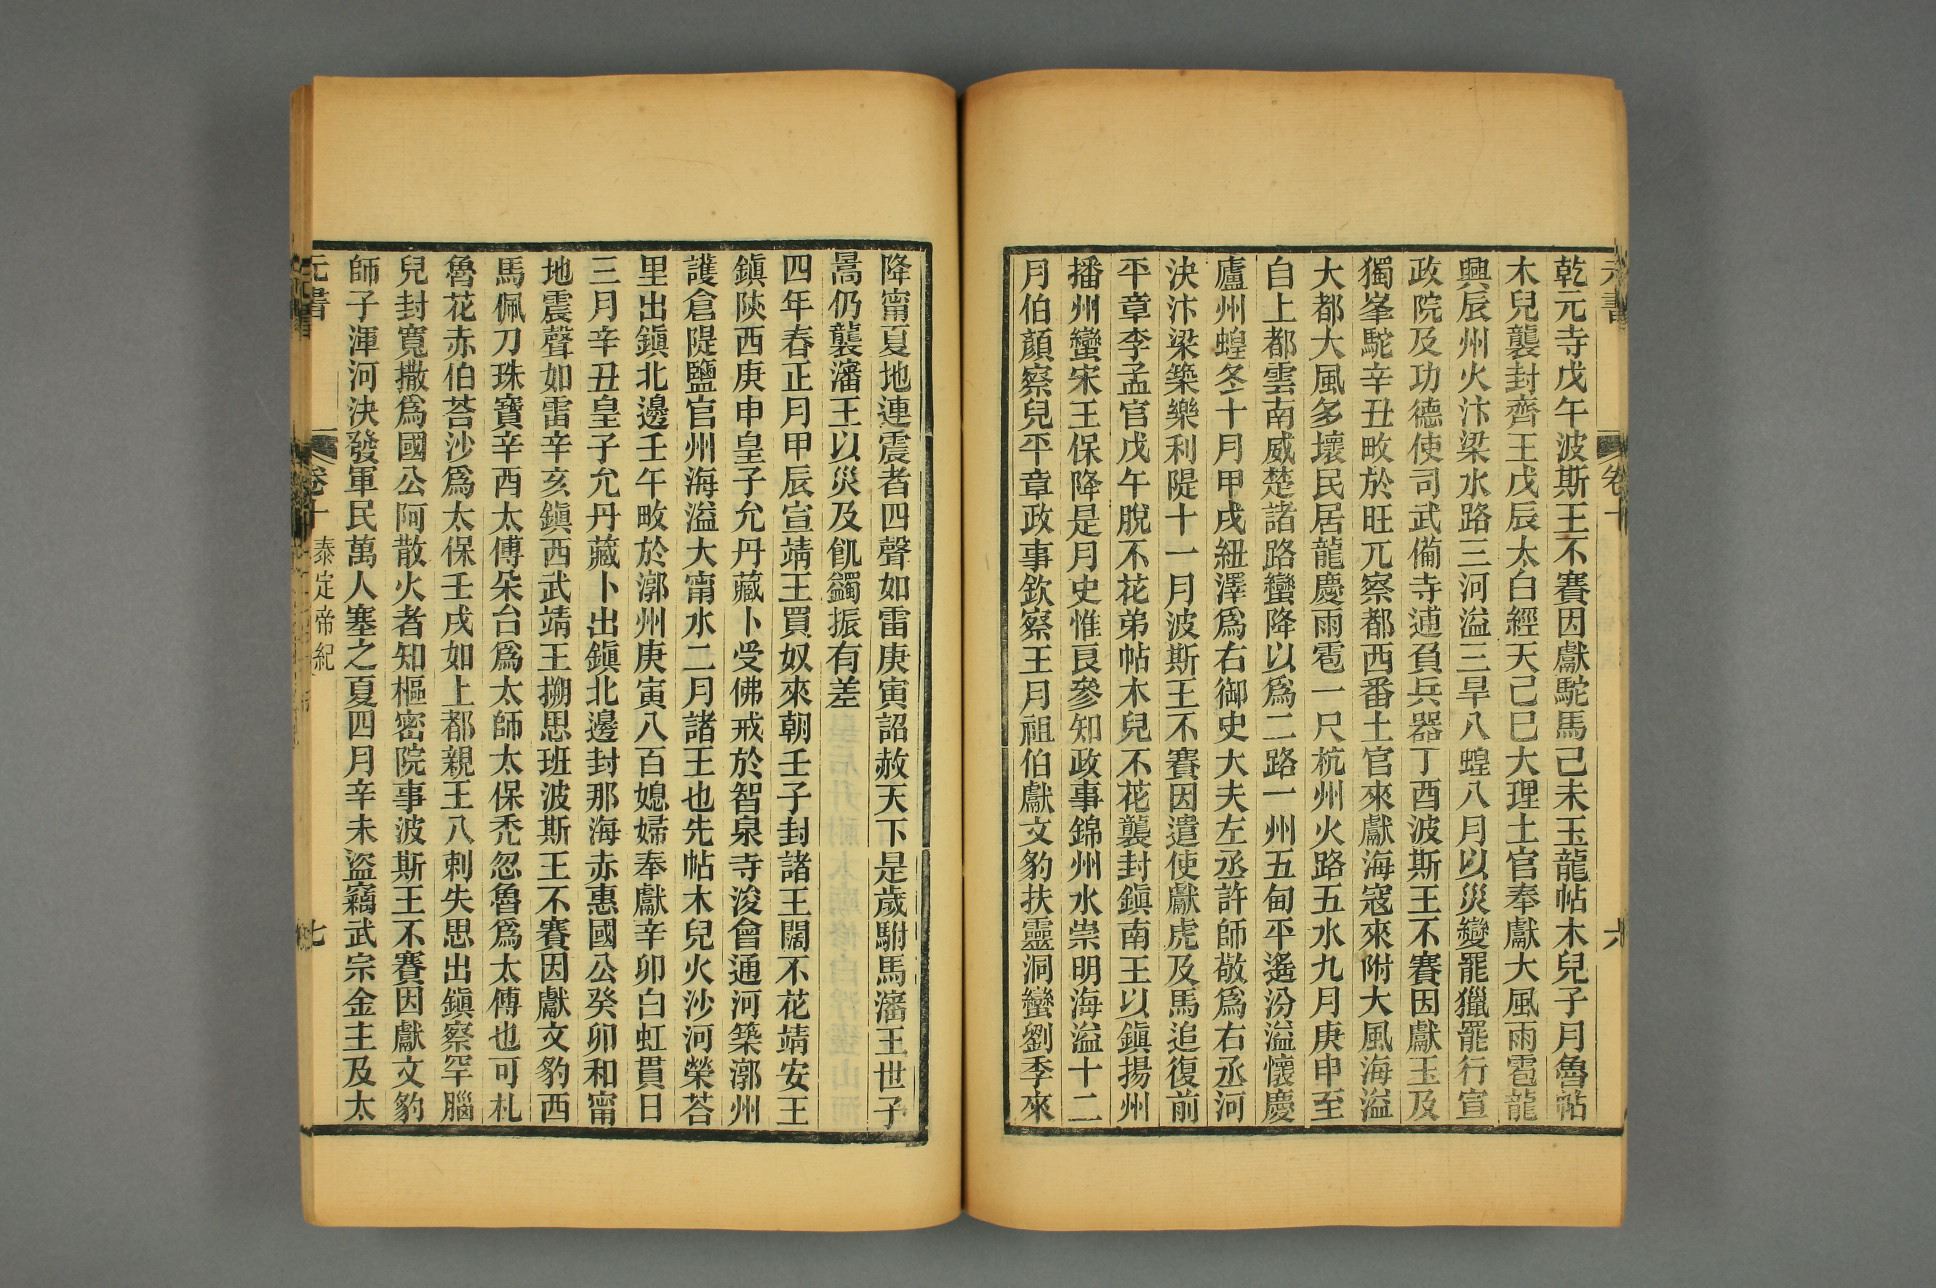 乾元寺戊午波斯王不賽因獻駝馬己未玉龍帖木兒子月魯帖
木兒襲封齊王戊辰太白經天己巳大理土官奉獻大風雨雹龍
興辰州火汴梁水路三河溢三旱八蝗八月以災變罷獵罷行宣
政院及功德使司武備寺逋負兵器丁酉波斯王不賽因獻玉及
獨峯駝辛丑畋於旺兀察都西番土官來獻海寇來附大風海溢
大都大風多壞民居龍慶雨雹一尺杭州火路五水九月庚申至
自上都雲南威楚諸路蠻降以爲二路一州五甸平遙汾溢懷慶
廬州蝗冬十月甲戌紐澤爲右御史大夫左丞許師敬爲右丞河
決汴梁築樂利隄十一月波斯王不賽因遣使獻虎及馬追復前
平章李孟官戊午脫不花弟帖木兒不花襲封鎮南王以鎮揚州
播州蠻宋王保降是月史惟良參知政事錦州水崇明海溢十二
月伯顏察兒平章政事欽察王月祖伯獻文豹扶靈洞蠻劉季來
元書
卷十
六
降甯夏地連震者四聲如雷庚寅詔赦天下是歲駙馬瀋王世子
暠仍襲瀋王以災及飢蠲振有差
四年春正月甲辰宣靖王買奴來朝壬子封諸王闊不花靖安王
鎮陝西庚申皇子允丹藏卜受佛戒於智泉寺浚會通河築漷州
護倉隄鹽官州海溢大甯水二月諸王也先帖木兒火沙河榮荅
里出鎮北邊壬午畋於漷州庚寅八百媳婦奉獻辛卯白虹貫日
三月辛丑皇子允丹藏卜出鎮北邊封那海赤惠國公癸卯和甯
地震聲如雷辛亥鎮西武靖王搠思班波斯王不賽因獻文豹西
馬佩刀珠寶辛酉太傅朵台爲太師太保禿忽魯爲太傅也可札
魯花赤伯荅沙爲太保壬戌如上都親王八剌失思出鎮察罕腦
兒封寬撒爲國公阿散火者知樞密院事波斯王不賽因獻文豹
師子渾河決發軍民萬人塞之夏四月辛未盜竊武宗金主及太
元書
卷十
泰定帝紀
七